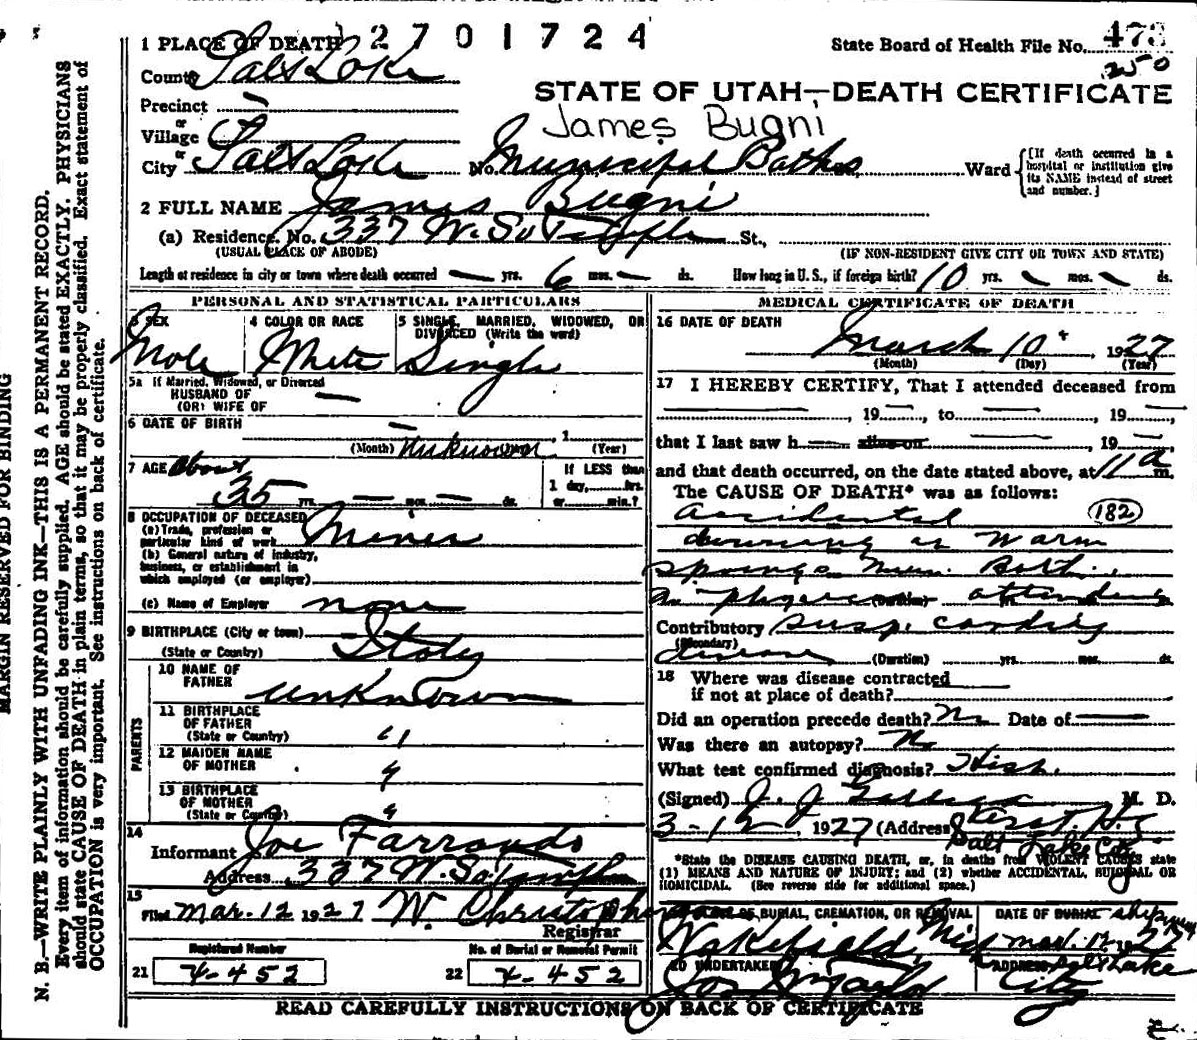 2701724
1 PLACE OF DEATH
State Board of Health File No. 473
250
County Salt Lake
STATE OF UTAH—DEATH CERTIFICATE
Precinct —
or
Village
James Bugni
or
City Salt Lake No. Municipal Baths Ward
[If death occurred in a hospital or institution give its NAME instead of street and number.]
2 FULL NAME James Bugni
(a) Residence. No. 337 W. So Temple St.,
(USUAL PLACE OF ABODE) (IF NON-RESIDENT GIVE CITY OR TOWN AND STATE)
Length of residence in city or town where death occurred — yrs. 6 mos. — ds. How long in U. S., if foreign birth? 10 yrs. — mos. — ds.
PERSONAL AND STATISTICAL PARTICULARS
3 SEX
Male
4 COLOR OR RACE
White
5 SINGLE, MARRIED, WIDOWED, OR DIVORCED (Write the word)
Single
5a If Married, Widowed, or Divorced
HUSBAND OF
(OR) WIFE OF —
6 DATE OF BIRTH —
(Month) Unknown , 1 (Year)
7 AGE about
35 yrs. — mos. — ds.
If LESS than
1 day, hrs.
or min.?
8 OCCUPATION OF DECEASED
(a) Trade, profession or
particular kind of work Miner
(b) General nature of industry,
business, or establishment in
which employed (or employer)
(c) Name of Employer none
9 BIRTHPLACE (City or town)
(State or Country) Italy
PARENTS
10 NAME OF
FATHER unknown
11 BIRTHPLACE
OF FATHER
(State or Country) "
12 MAIDEN NAME
OF MOTHER "
13 BIRTHPLACE
OF MOTHER
(State or Country) "
14
Informant Joe Farrando
Address 337 W. So Temple
15
Filed Mar. 12 1927 W. Christopherson
Registrar
Registered Number
21 X-452
No. of Burial or Removal Permit
22 X-452
MEDICAL CERTIFICATE OF DEATH
16 DATE OF DEATH
March 10, 1927
(Month) (Day) (Year)
17 I HEREBY CERTIFY, That I attended deceased from
— , 19 — to — , 19 —
that I last saw h — alive on — , 19 —
and that death occurred, on the date stated above, at 11 a m.
The CAUSE OF DEATH* was as follows:
Accidental (182)
drowning at Warm
Springs Mun. Bath.
no physician attending
(Duration)
Contributory susp. cardiac
(Secondary)
disease (Duration) yrs. mos. ds.
18 Where was disease contracted
if not at place of death?
Did an operation precede death? No Date of —
Was there an autopsy? No
What test confirmed diagnosis? Hist.
(Signed) J. J. M. D.
3-12, 1927 (Address)
Salt Lake City
*State the DISEASE CAUSING DEATH, or, in deaths from VIOLENT CAUSES state
(1) MEANS AND NATURE OF INJURY; and (2) whether ACCIDENTAL, SUICIDAL OR
HOMICIDAL. (See reverse side for additional space.)
PLACE OF BURIAL, CREMATION, OR REMOVAL
Wakefield, Mich
DATE OF BURIAL
Mar. 12 1927
20 UNDERTAKER
Jos Wm Taylor
ADDRESS Salt Lake
City
READ CAREFULLY INSTRUCTIONS ON BACK OF CERTIFICATE
MARGIN RESERVED FOR BINDING
N. B.—WRITE PLAINLY WITH UNFADING INK—THIS IS A PERMANENT RECORD.
Every item of information should be carefully supplied. AGE should be stated EXACTLY. PHYSICIANS
should state CAUSE OF DEATH in plain terms, so that it may be properly classified. Exact statement of
OCCUPATION is very important. See instructions on back of certificate.